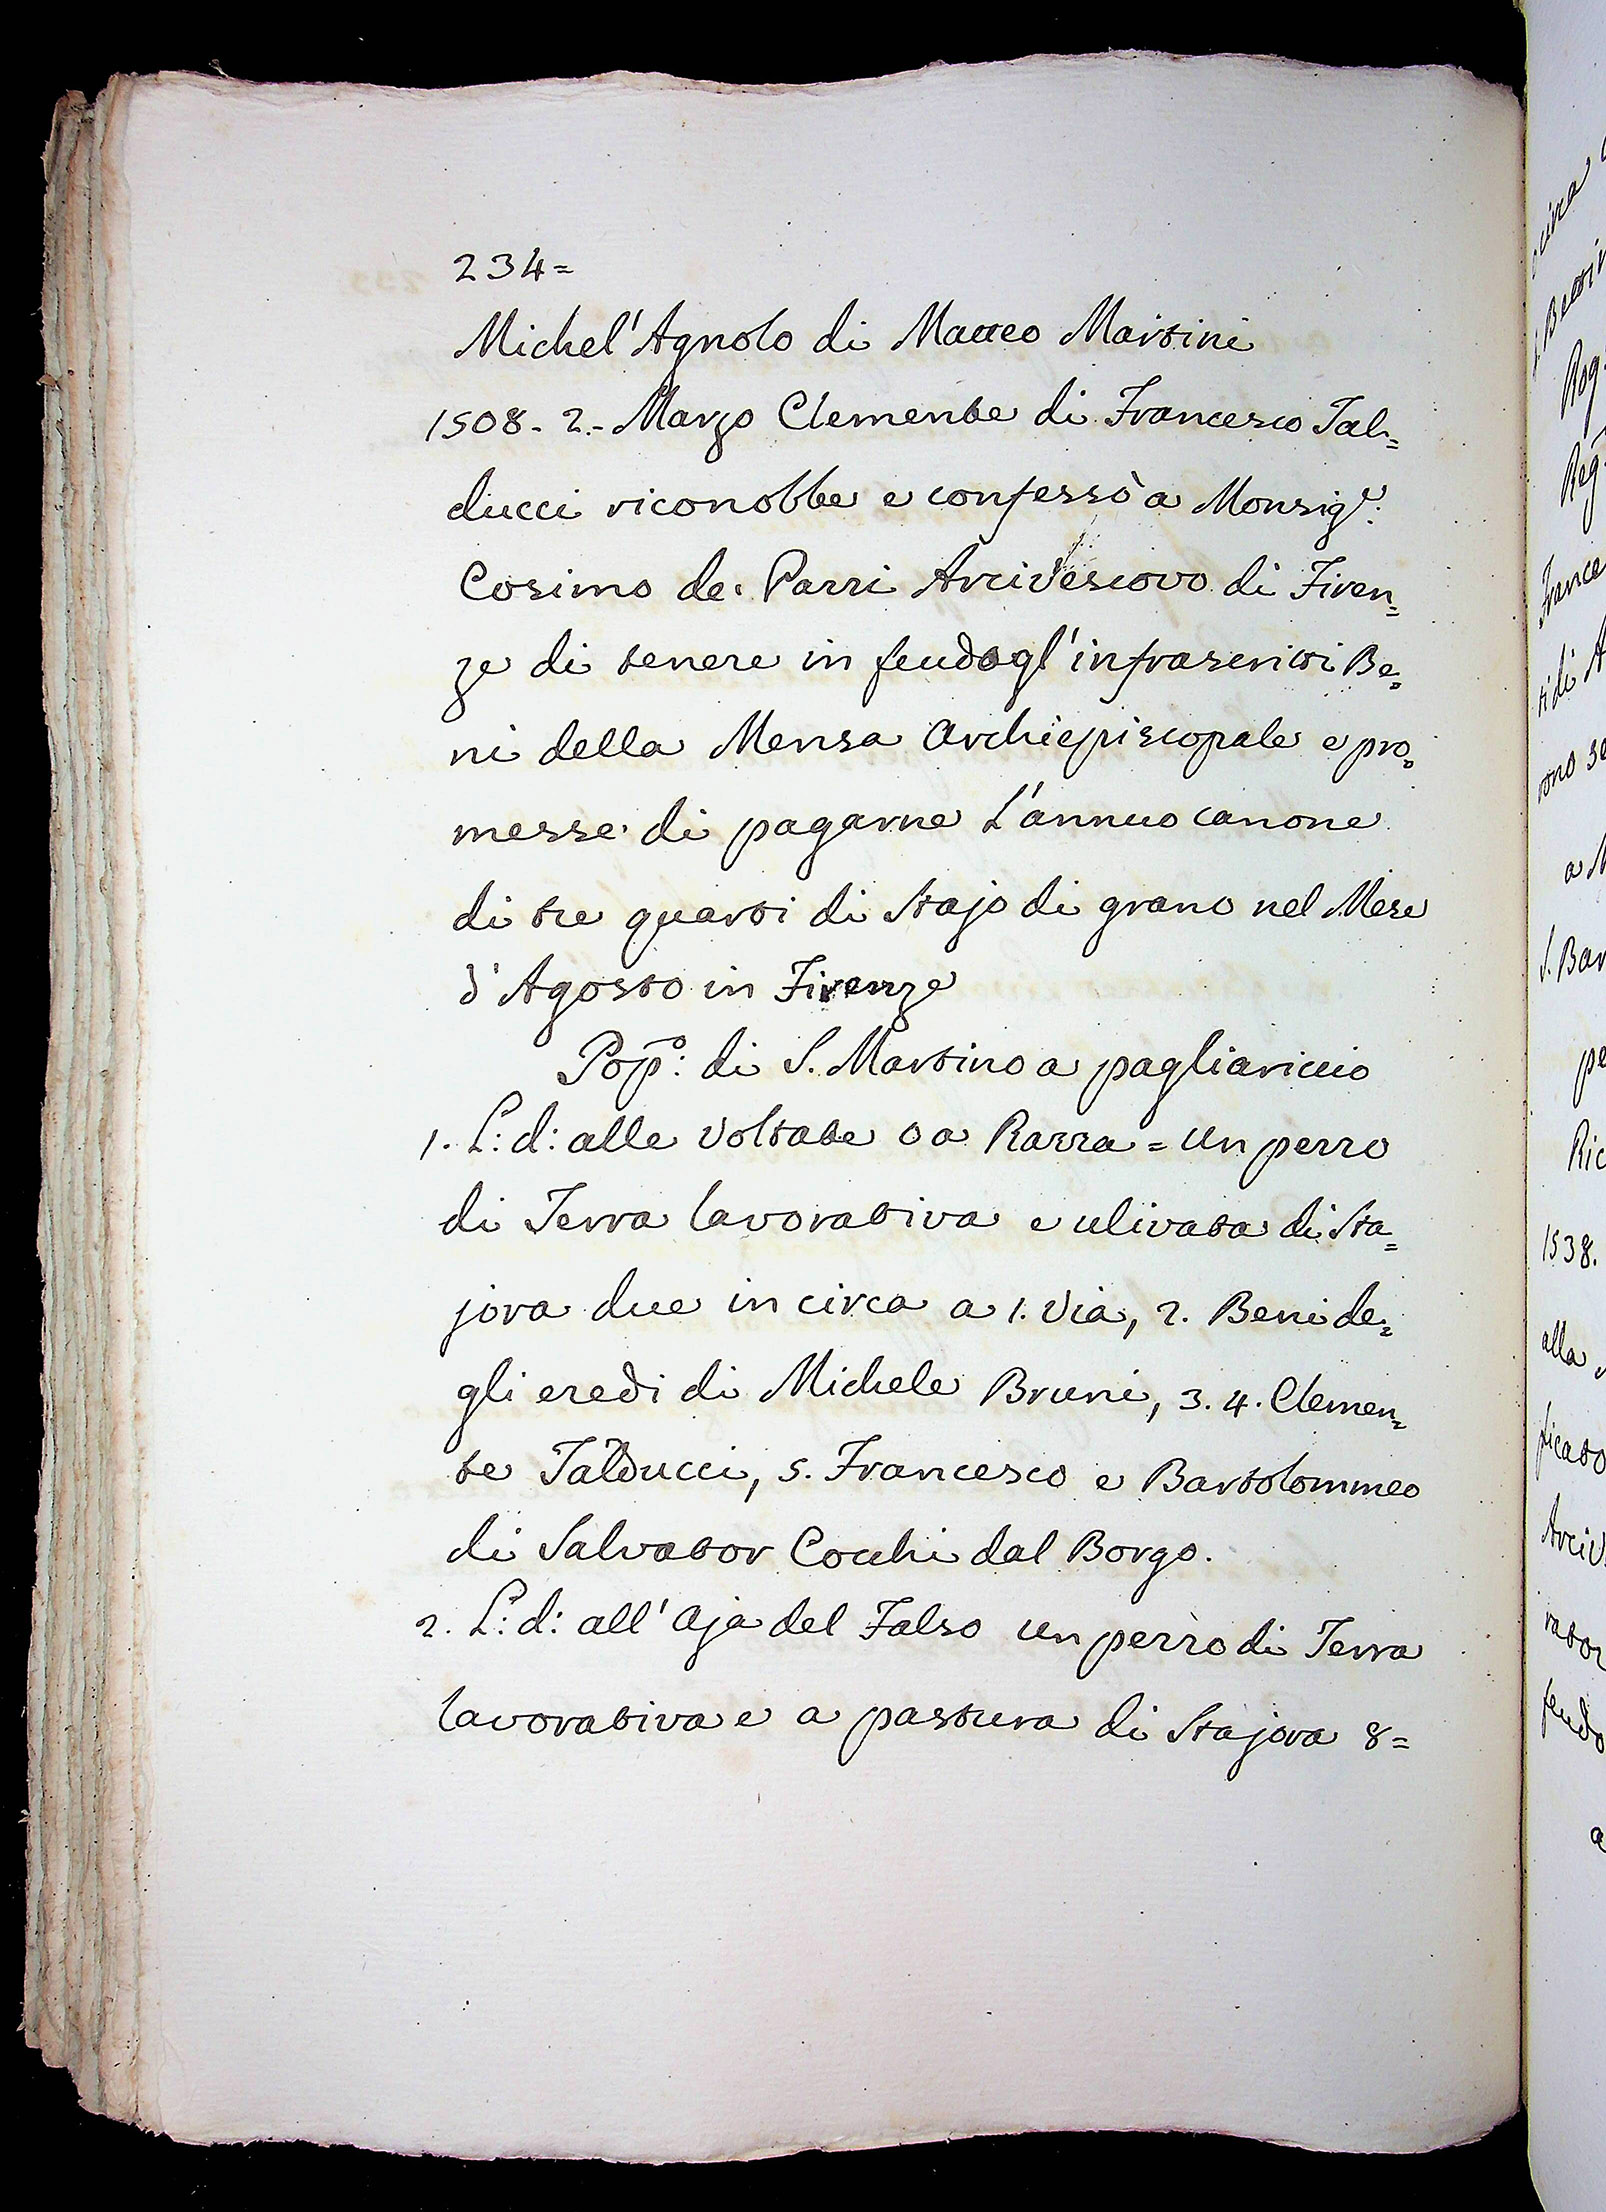 234=
Michel'Agnolo di Matteo Martini
1508. 2. Marzo Clemente di Francesco Tal=
ducci riconobbe e confessò a Monsig.e:
Cosimo de' Pazzi Arcivescovo di Firen=
ze di tenere in feudo gl'infrascritti Be=
ni della Mensa Archiepiscopale e pro=
messe di pagarne l'annuo canone
di tre quarti di Stajo di grano nel Mese
d'Agosto in Firenze
Pop.o: di S. Martino a pagliariccio
1. L: d: alle voltate o a Razza = un pezzo
di Terra lavorativa e ulivata di Sta=
jora due in circa a 1. Via, 2. Beni de=
gli eredi di Michele Bruni, 3. 4. Clemen=
te Talducci, 5. Francesco e Bartolommeo
di Salvator Cocchi dal Borgo.
2. L: d: all'Aja del Falso un pezzo di Terra
lavorativa e a pastura di Stajora 8=
Rog.
Reg.
France
a M
S. Bar
pe
Ric
1538.
alla
ficato
Arciv
feudo
a